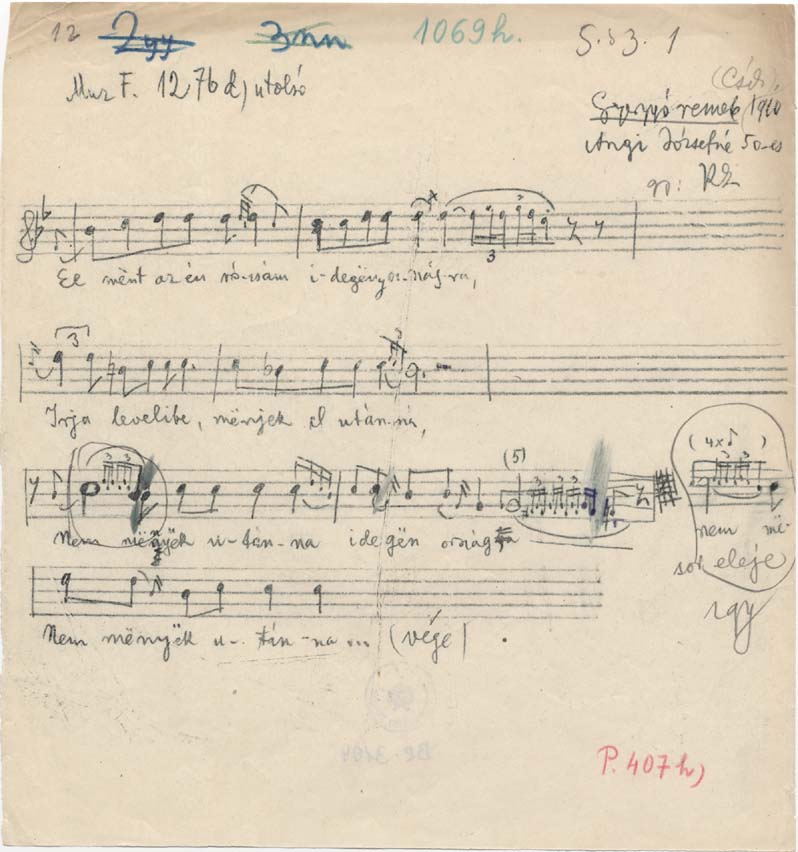 12 2gy 3nn 1069h. 5. 3. 1
Muz F. 1276 d) utolsó
(Csík),
Gyergyóremete 1910
Angi Józsefné 50-es
gy: KZ
El mënt az én ró-zsám i-degënyor-szág-ra,
3
3
3
Irja levelibe, mënjek el után-na,
3
3 3
(5)
3 3 3
(4x♪)
3 3
Nem mënyëk u-tán-na idegën országra
nem më-
sor eleje
így
Nem mënyëk u-tán-na ... (vége)
P. 407 h)